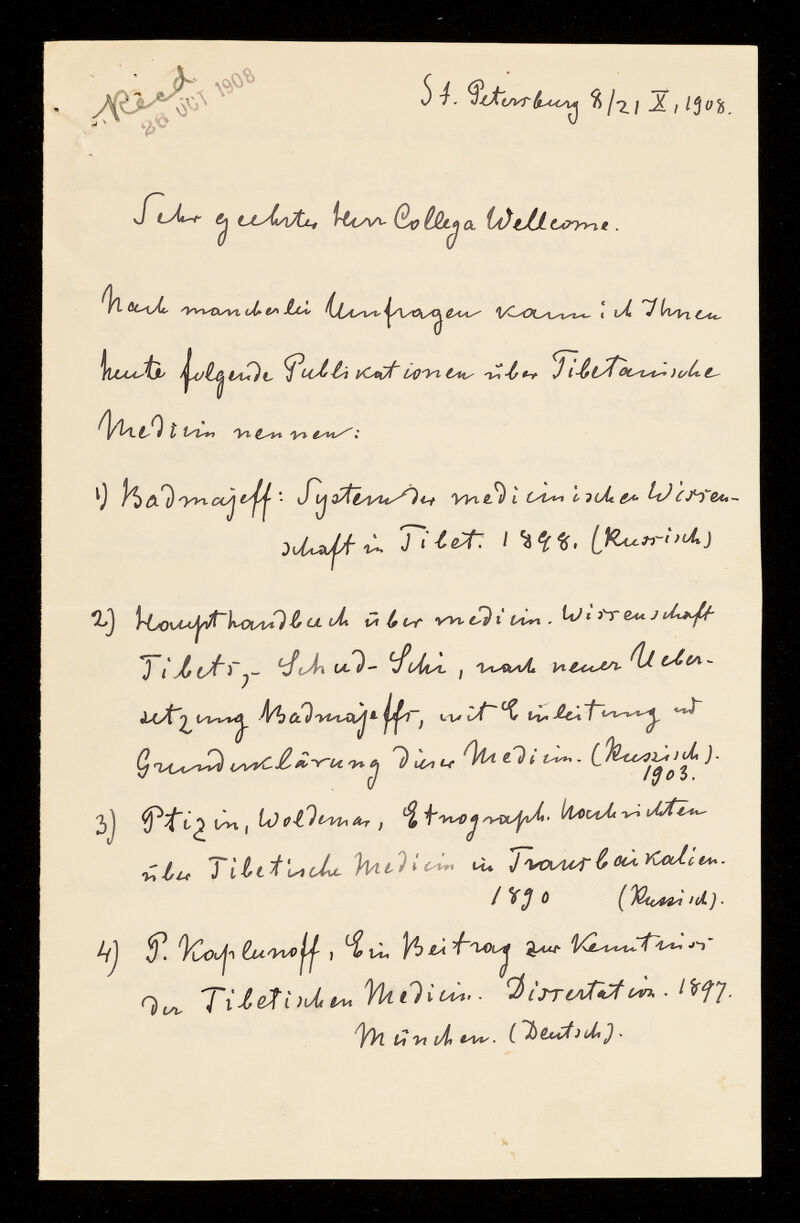 Recd
26 OCT 1908
St. Petersburg 8/21 X, 1908.
Sehr geehrter Herr Collega Wellcome.
Nach mancherlei Umfragen kann ich Ihnen
heute folgende Publikationen über Tibetanische
Medicin nennen:
1) Badmajeff: System der medicinischen Wissen-
schaft in Tibet. 1898. (Russisch)
2) Haupthandbuch über medicin. Wissenschaft
Tibets,- Schud-Schi, nach neuer Ueber-
setzung Badmajeffs, mit Einleitung ud
Grunderklärung dieser Medicin. (Russisch).
1903.
3) Ptizin, Woldemar, Etnograph. Nachrichten
über Tibetische Medicin in Transbaikalien.
1890 (Russisch).
4) P. Kaplunoff, Ein Beitrag zur Kenntniss
der Tibetischen Medicin. Dissertation. 1897.
München. (Deutsch).